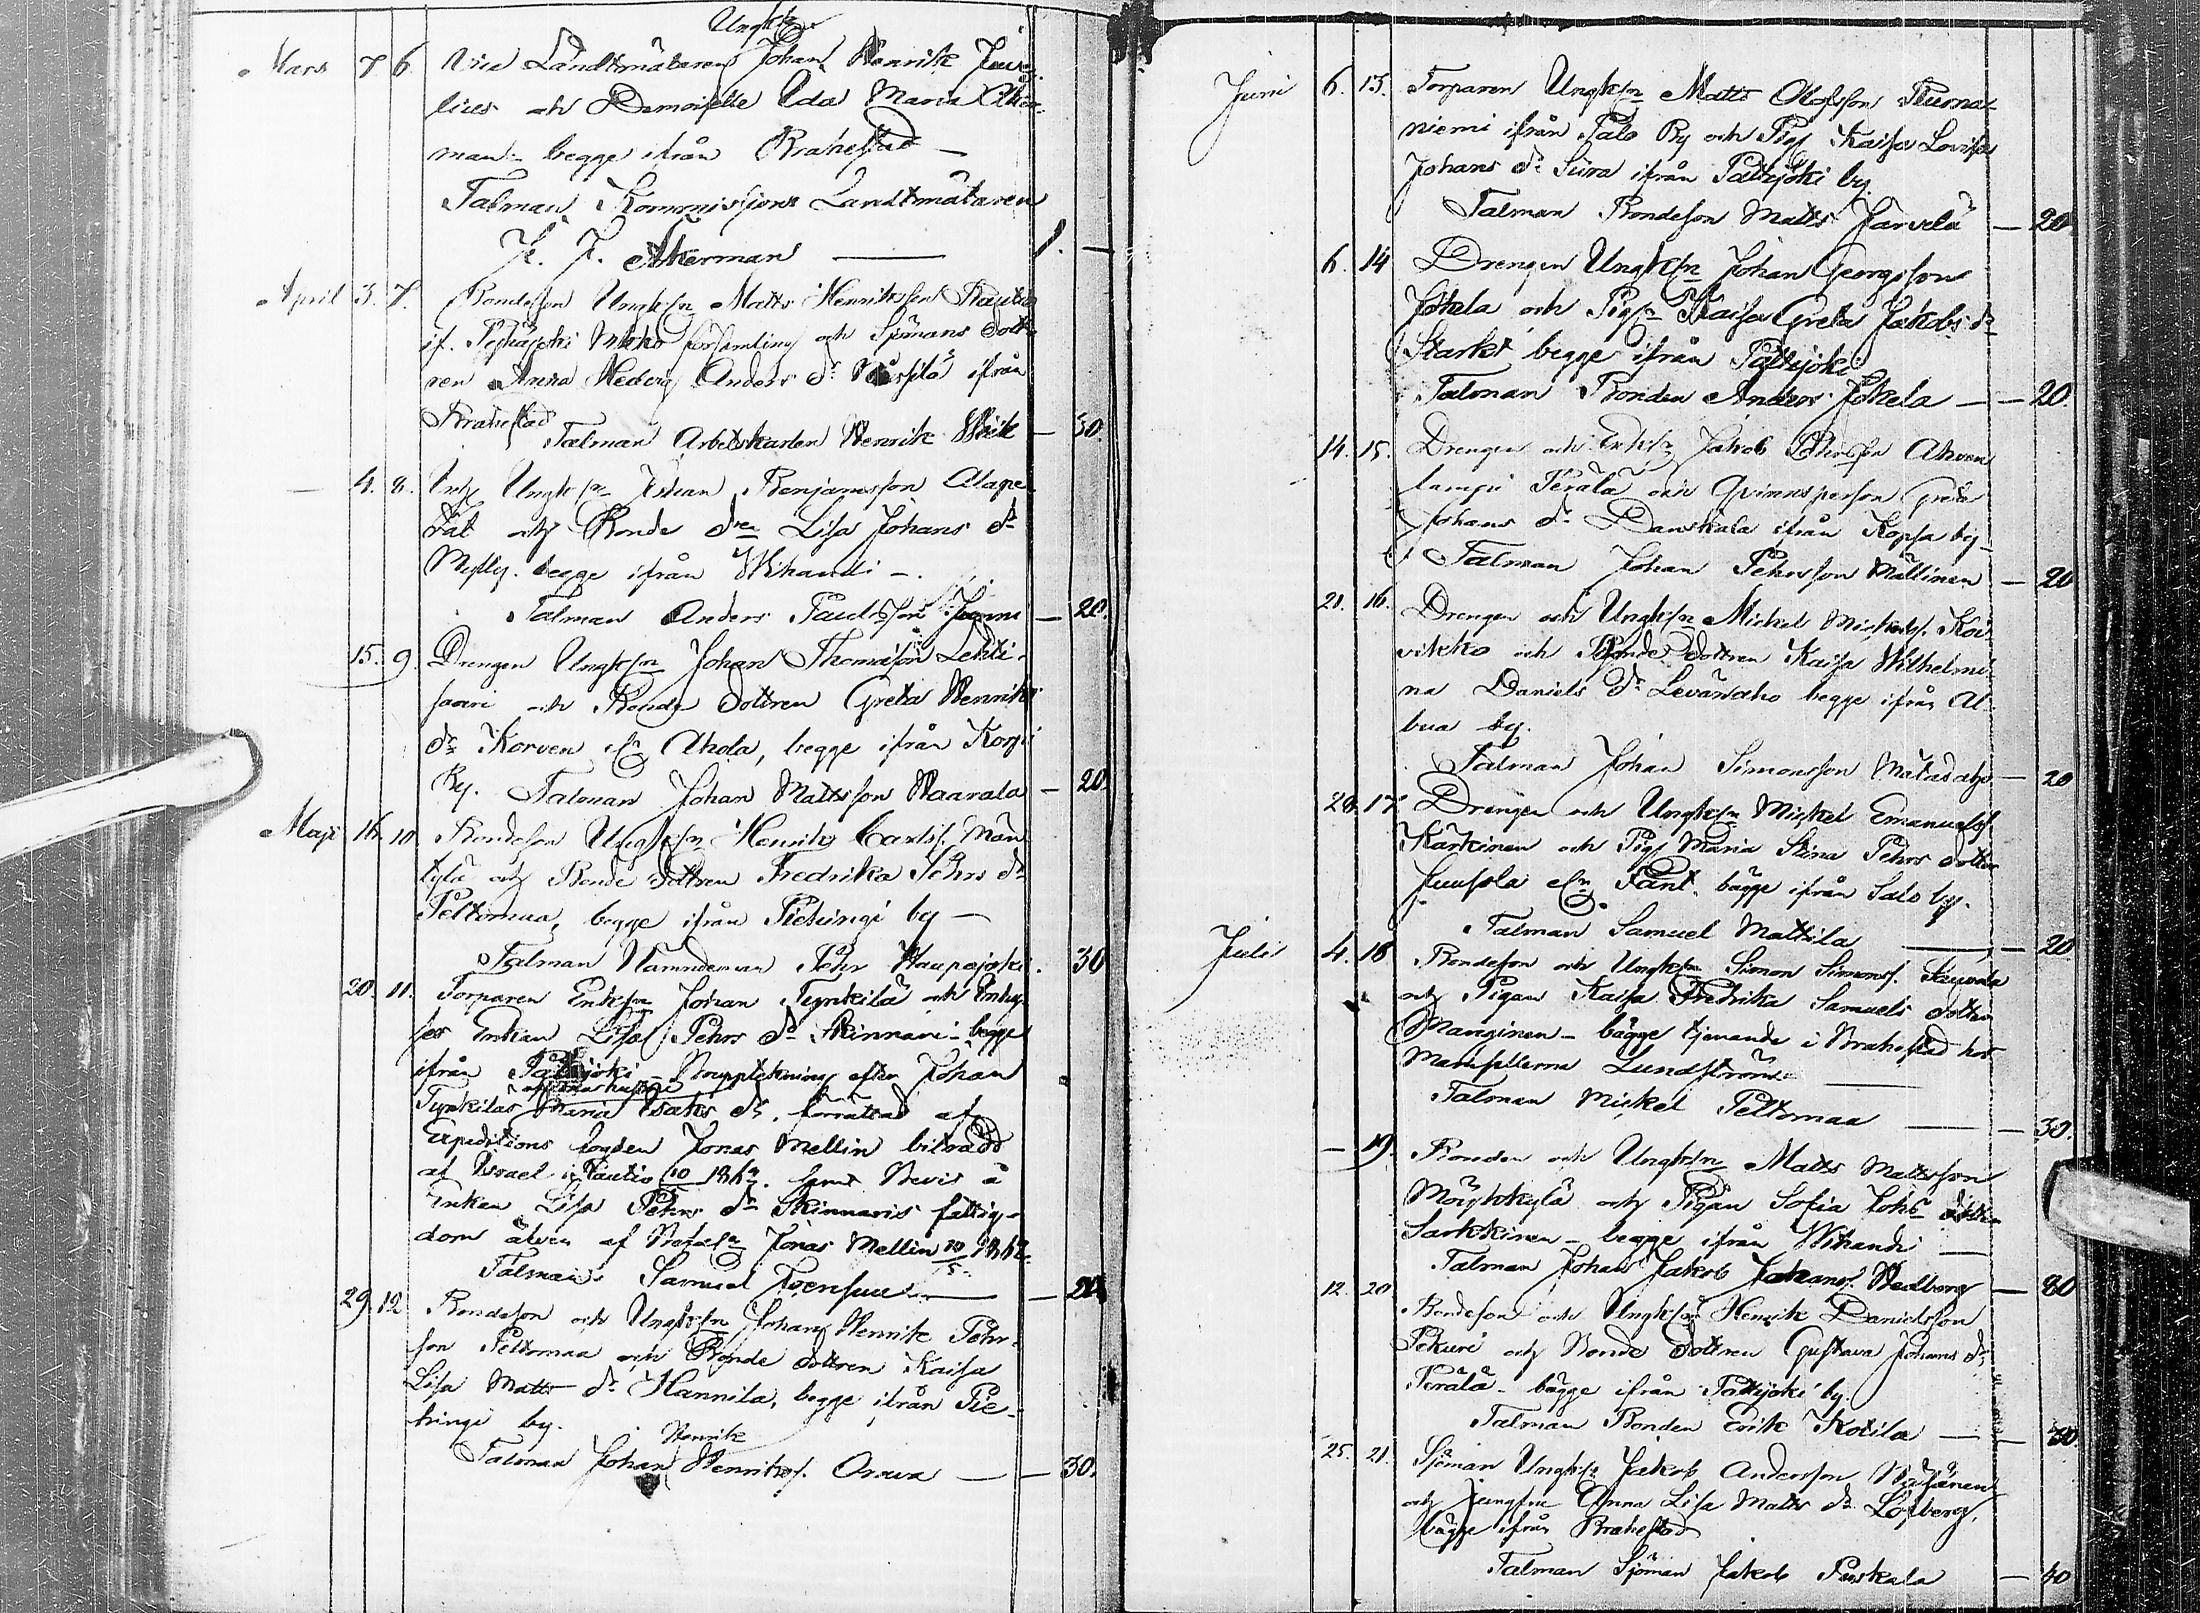 Ungk:n
Mars 7 6. Vice Landtmätaren Johan Henrik
lius och Demoiselle Ida Maria
man begge ifrån Brahestad —
Talman Kommissions Landtmätaren
Åkerman — 1. —
April 3. 7. Bondeson Ungksn Matts Henriksson Rauta
if. Pyhäjoki församling och Sjömans dott-
ren Anna Hedvig Anders dr ifrån
Brahestad
Talman Arbetskarlen Henrik — 30.
— 4. 8. Ungksn Johan Benjamsson Alape
och Bonde dren Lisa Johans dr
Mylly. begge ifrån Wihandi —.
Talman Anders Paulsson — 20.
15. 9. Drengen Ungksn Johan Thomasson Lehti-
saari och Bonde dottren Greta Henriks
dr Korven Ahola, begge ifrån
By. Talman Johan Mattsson Waarala — 20.
Maji 16. 10. Bondeson Ungksn Henrik Carlss. Män
tylä och Bonde dottren Fredrika Pehrs dr
Peltomaa, begge ifrån Piehingi by —
Talman Nämndeman Pehr Haapajoki. 30
20. 11. Torparen Enkln Johan Tynkilä och
ses Enkan Lisa Pehrs dr Skinnari - begge
ifrån Pattijoki - Bouppteckning efter Johan
Tynkiläs Maria Isaks dr. förrättad af
Expeditions fogden Jonas Mellin biträdd
af Israel Rautio samt Bevis å
Enkan Lisa Pehrs dr Skinnaris fattig-
dom äfven af Jonas Mellin
Talman Samuel — 20
29. 12. Bondeson och Ungksn Johan Henrik Pehr-
son Peltomaa och Bonde dottren Kaisa
Lisa Matts dr Hannila, begge ifrån Pie-
hingi by.
Henrik
Talman Johan Henrikss. Orava — 30.
Juni 6. 13. Torparen Ungksn Matts Olofsson
niemi ifrån Palo By och Pig. Kaisa Lovisa
Johans dr Siira ifrån Pattijoki by.
Talman Bondeson Matts Järvelä — 20
6. 14 Drengen Ungksn Johan Georgsson
Jokela och Pign Kaisa Greta Jakobs dr
Starkt begge ifrån Pattijoki
Talman Bonden Anders Jokela — 20.
14. 15. Drengen och Enkln Jakob Pehrsson Ahven
lampi Perälä och Qvinnsperson Greta
Johans dr Danskala ifrån Kopsa by
Talman Johan Pehrsson Mällinen — 20
21. 16. Drengen och Ungksn Mickel Mickelss. Koi-
vikko och Bonde dottren Kaisa Wilhelmi-
na Daniels dr Levänaho begge ifrån Al-
bua by.
Talman Johan Simonsson Matasaho — 20
28. 17. Drengen och Ungksn Mickel Emanuelss.
Kärkinen och Pig. Maria Stina Pehrs dotter
Juusola Pant. bägge ifrån Salo by.
Talman Samuel Mattila — 20
Juli 4. 18 Bondeson och Ungksn Simon Simonss.
och Pigan Kaisa Fredrika Samuels dotter
Manginen - bägge tjenande i Brahestad hos
Mamsellerna Lundström
Talman Mickel Peltomaa — 30.
— 19. Bonden och Ungksn Matts Mattsson
Möykkylä och Pigan Sofia Johs dotter
Sarkkinen - begge ifrån Wihandi —
Talman Johan Jakob Johanss. Hedberg — 80
12. 20 Bondeson och Ungksn Henrik Danielsson
Pekuri och Bonde dottren Gustava Johans dr
Perälä - bägge ifrån Pattijoki by.
Talman Bonden Erik Kotila — 30.
25. 21. Sjöman Ungksn Jakob Andersson
och Jungfru Anna Lisa Matts dr Löfberg,
bägge ifrån Brahestad
Talman Sjöman Jakob Puskala — 40